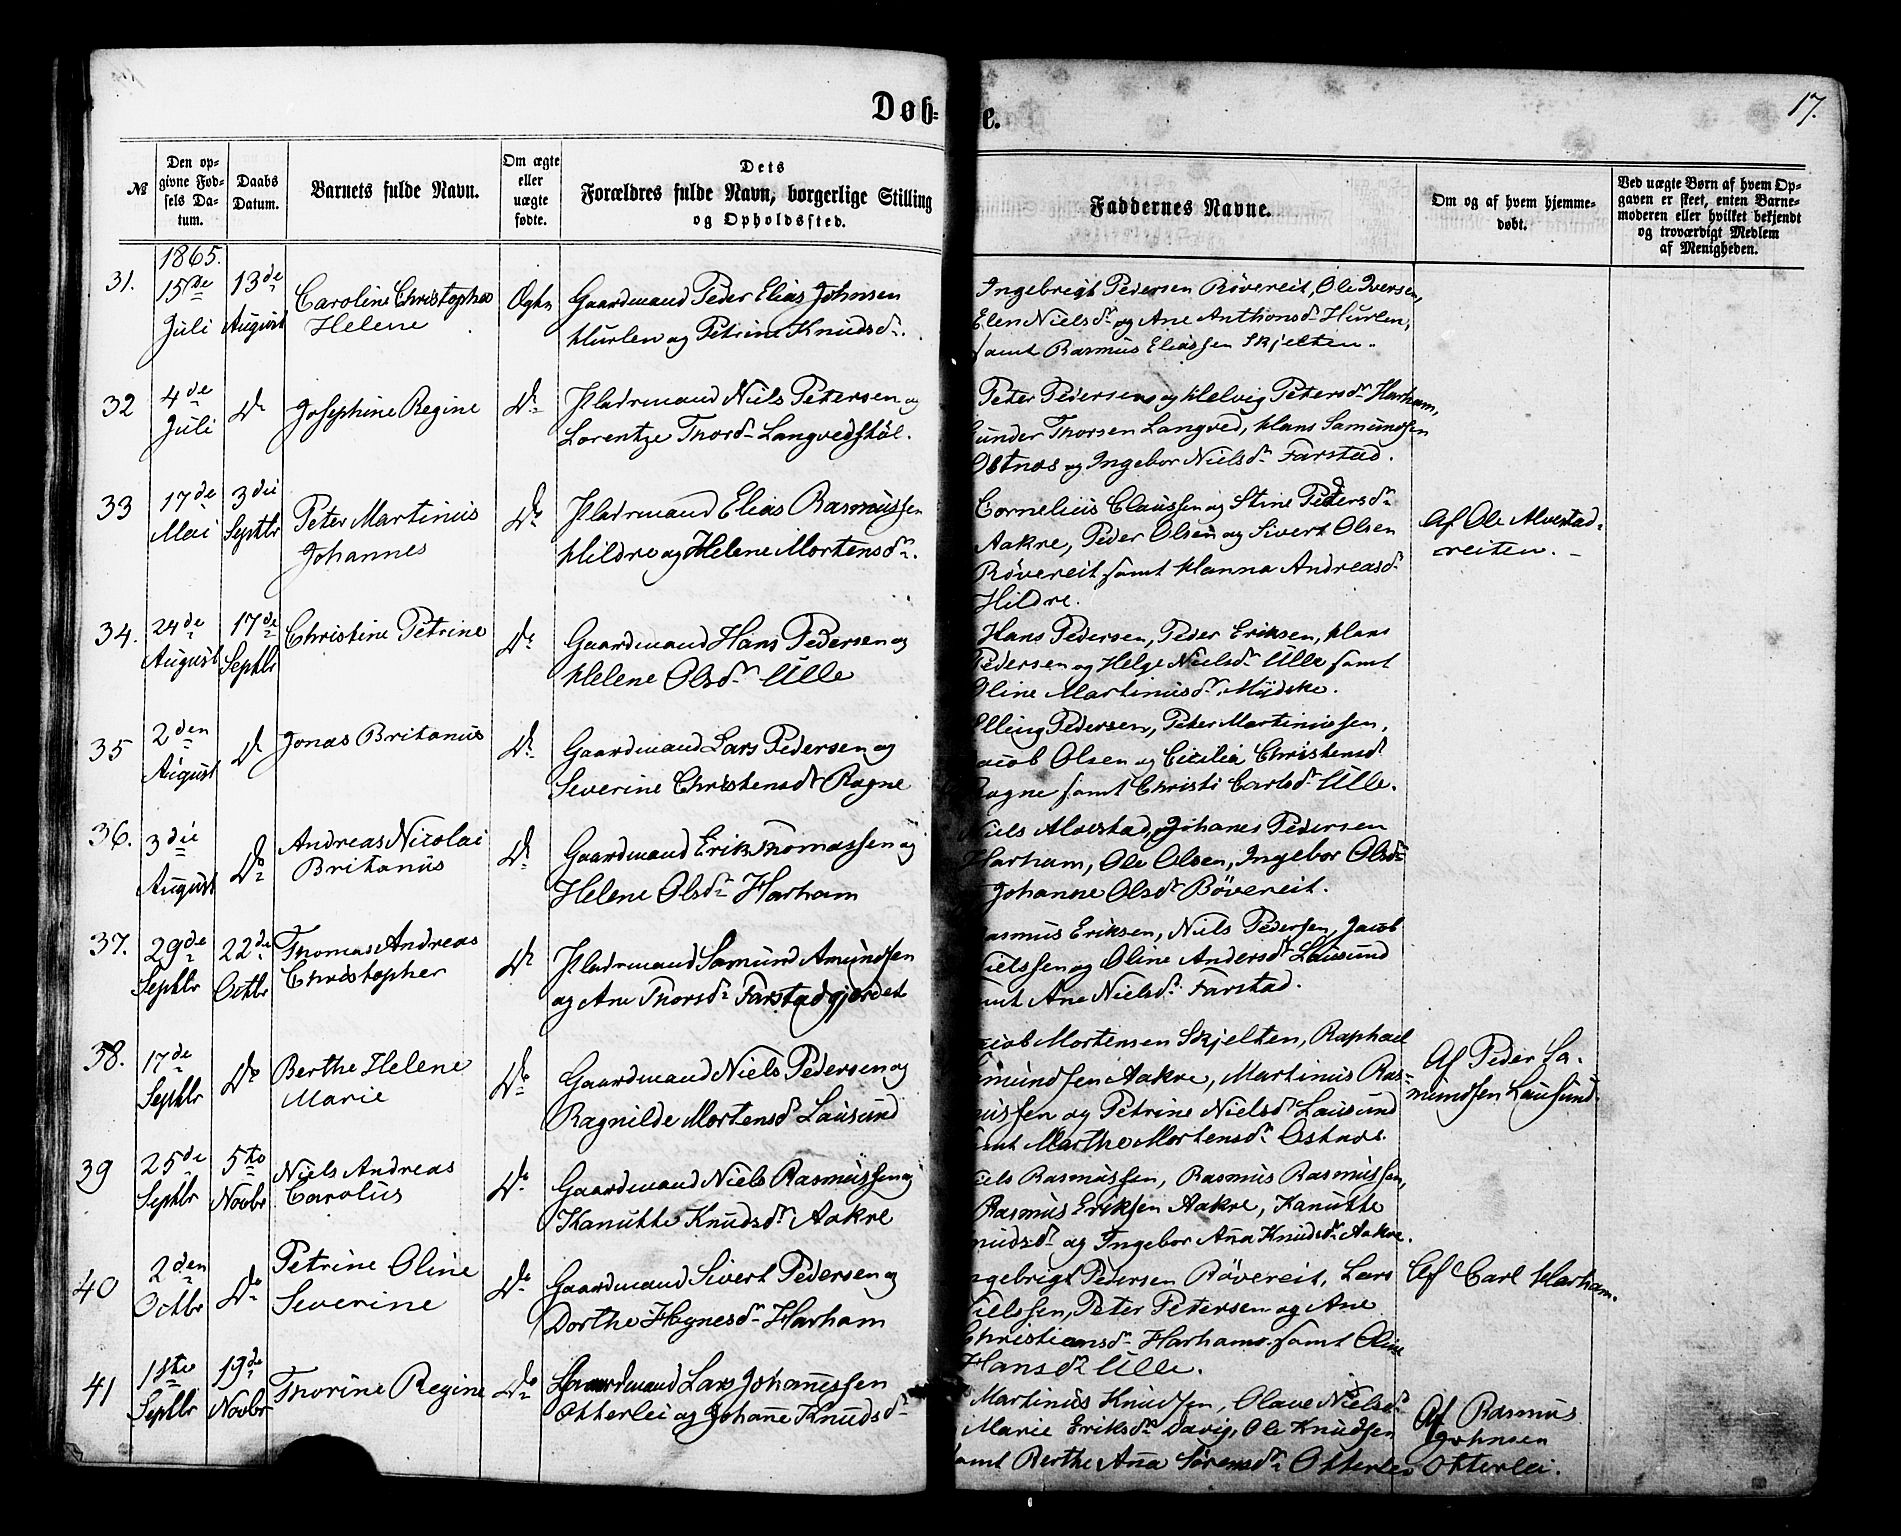 17.
Døb-
e.
№
Den op-
givne Fød-
sels Da-
tum.
Daabs
Datum.
Barnets fulde Navn.
Om ægte
eller
uægte
fødte.
Dets
Forældres fulde Navn, borgerlige Stilling
og Opholdssted.
Faddernes Navne.
Om og af hvem hjemme-
døbt.
Ved uægte Børn af hvem Op-
gaven er skeet, enten Barne-
moderen eller hvilket bekjendt
og troværdigt Medlem
af Menigheden.
1865.
31.
15de
Juli
13de
August
Caroline Christopha
Helene
Ægte
Gaardmand Peder Elias Johnsen
Hurlen og Petrine Knudsdr.
Ingebrigt Pedersen Rövereit, Ole Iversen,
Elen Nielsdr og Ane Anthonsdr Hurlen,
samt Rasmus Eliassen Skjelten.
32
4de
Juli
Do
Josephine Regine
Do
Pladsmand Niels Petersen og
Lorentze Thordr Langvedstöl.
Peter Pedersen og Helvig Petersdr Harham,
Gunder Thorsen Langved, Hans Samundsen
Ostnæs og Ingebor Nielsdr Farstad.
33
17de
Mai
3die
Septbr
Peter Martinus
Johannes
Do
Pladsmand Elias Rasmussen
Hildre og Helene Mortensdr.
Cornelius Claussen og Stine Pedersdr
Aakre, Peder Olsen og Sivert Olsen
Rövereit samt Hanna Andreasdr
Hildre.
Af Ole Alvestad-
reiten.
34.
24de
August
17de
Septbr
Christine Petrine
Do
Gaardmand Hans Pedersen og
Helene Olsdr Ulle
Hans Pedersen, Peder Eriksen, Hans
Pedersen og Helge Nielsdr Ulle samt
Oline Martinusdr Myhske.
35
2den
August
Do
Jonas Britanus
Do
Gaardmand Lars Pedersen og
Severine Christensdr Rogne
Elling Pedersen, Peter Martinussen,
Jacob Olsen og Cicilia Christensdr
Rogne samt Christi Carlsdr Ulle.
36.
3die
August
Do
Andreas Nicolai
Britanus
Do
Gaardmand Erik Thomassen og
Helene Olsdr Harham
Niels Alvestad, Johanes Pedersen
Harham, Ole Olsen, Ingebor Olsdr
Johanne Olsdr Bövereit.
37.
29de
Septbr
22de
Octbr
Thomas Andreas
Christopher
Do
Pladsmand Samund Amundsen
og Ane Thorsdr Farstadgjerdet
Rasmus Eriksen, Niels Pedersen, Jacob
Nielssen og Oline Andersdr Lausund
samt Ane Nielsdr Farstad.
38.
17de
Septbr
Do
Berthe Helene
Marie
Do
Gaardmand Niels Pedersen og
Ragnilde Mortensdr Lausund
Jacob Mortensen Skjelten, Raphael
Samundsen Aakre, Martinus Ras-
mussen og Petrine Nielsdr Lausund
samt Marthe Mortensdr Ostnæs.
Af Peder Sa-
mundsen Lausund.
39
25de
Septbr
5te
Novbr
Niels Andreas
Carolus
Do
Gaardmand Niels Rasmussen og
Kanutte Knudsdr Aakre
Niels Rasmussen, Rasmus Rasmussen,
Rasmus Eriksen Aakre, Kanutte
Knudsdr og Ingebor Ana Knudsdr Aakre.
40
2den
Octbr
Do
Petrine Oline
Severine
Do
Gaardmand Sivert Pedersen og
Dorthe Hognesdr Harham
Ingebrigt Pedersen Rövereit, Lars
Nielssen, Peter Petersen og Ane
Christiansdr Harham samt Oline
Hansdr Ulle.
Af Carl Harham.
41
18te
Septbr
19de
Novbr
Thorine Regine
Do
Gaardmand Lars Johannessen
Otterlei og Johanne Knudsdr
Martinus Knudsen, Olave Nielsdr
Marie Eriksdr Davig, Ole Knudsen
samt Berthe Ana Sörensdr Otterlei
Af Rasmus
Johnsen
Otterlei.